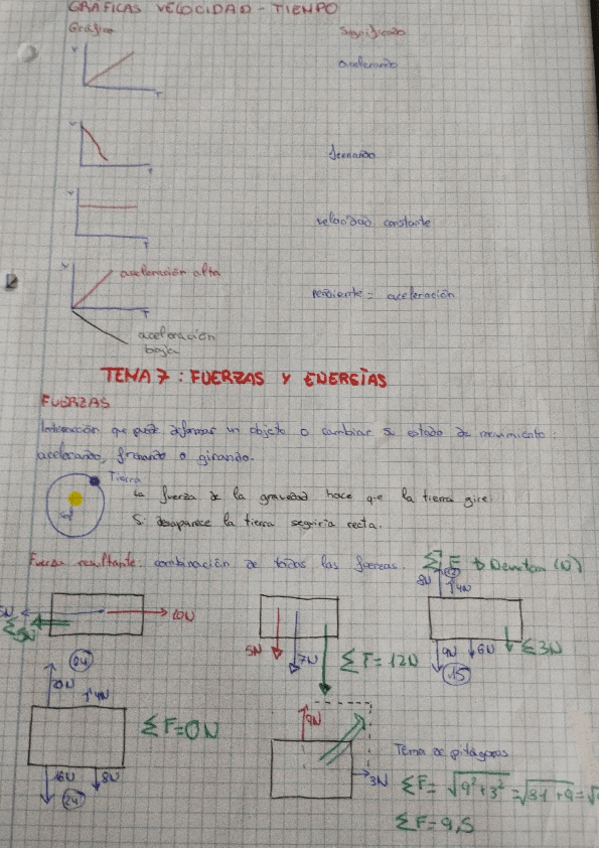 GRÁFICAS VELOCIDAD - TIEMPO
Gráfica Significado
V T acelerando
V T frenando
V T velocidad constante
V T aceleración alta pendiente = aceleración
aceleración
baja
TEMA 7: FUERZAS Y ENERGÍAS
FUERZAS
Interacción que puede deformar un objeto o cambiar su estado de movimiento:
acelerando, frenando o girando.
Tierra
Sol
La fuerza de la gravedad hace que la tierra gire.
Si desaparece la tierra seguiría recta.
Fuerza resultante: combinación de todas las fuerzas. Σ F
8N 4N
10N
5N 7N Σ F = 12N
9N 6N Σ 3N
15
24
20N 4N
Σ F = 0N
16N 8N
24
9N
3N
Tema de pitágoras
Σ F = √9²+3² = √81+9 = √
Σ F = 9,5